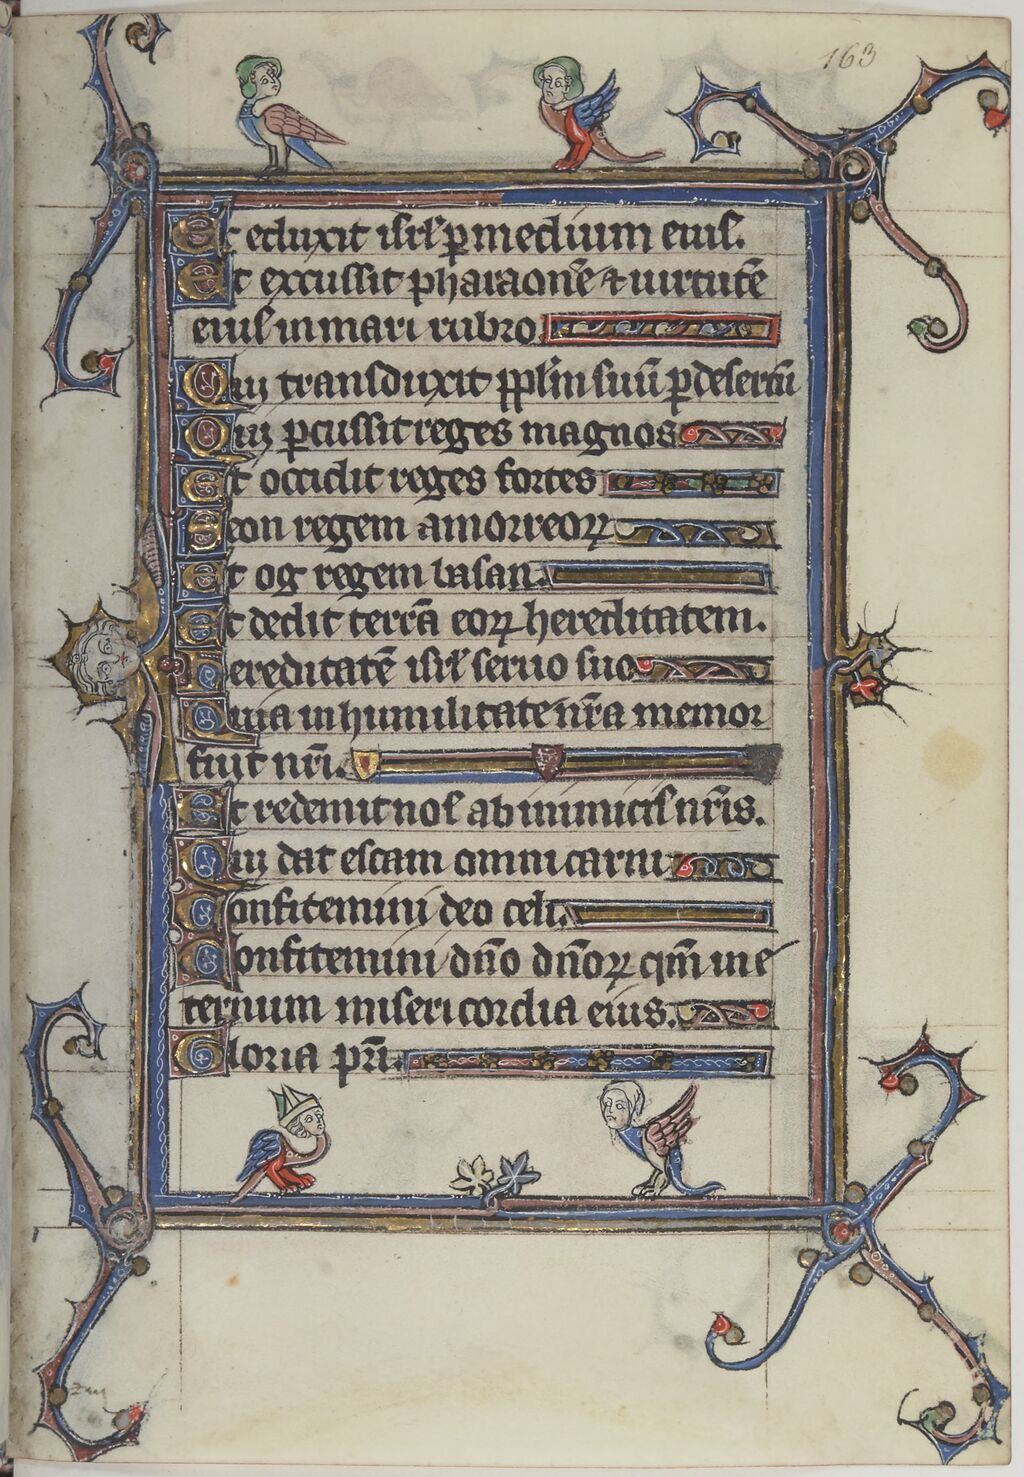 163
Et eduxit isrl' p medium eius.
Et excussit pharaonē & uirtutē
eius in mari rubro
Qui transduxit pplm suū p desertū
Qui pcussit reges magnos
Et occidit reges fortes
Seon regem amorreoꝝ
Et og regem basan.
Et dedit terrā eoꝝ hereditatem.
Hereditatē isrl' seruo suo
Quia in humilitate nr̄a memor
fuit nr̄i.
Et redemit nos ab inimicis nr̄is.
Qui dat escam omni carni
Confitemini deo celi.
Confitemini dn̄o dn̄oꝝ qm̄ in e
ternum misericordia eius.
Gloria pr̄i.